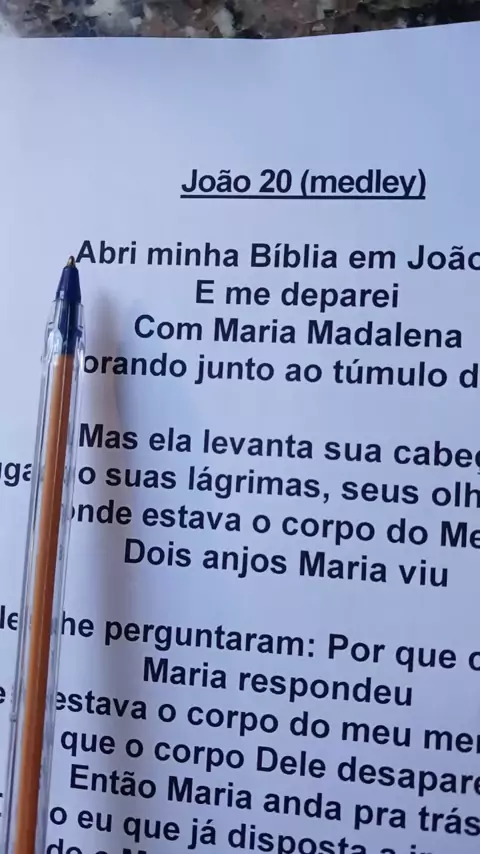 João 20 (medley)
Abri minha Bíblia em João
E me deparei
Com Maria Madalena
orando junto ao túmulo d
Mas ela levanta sua cabeç
o suas lágrimas, seus olh
onde estava o corpo do Me
Dois anjos Maria viu
he perguntaram: Por que c
Maria respondeu
estava o corpo do meu me
que o corpo Dele desapare
Então Maria anda pra trás
o eu que já disposta a